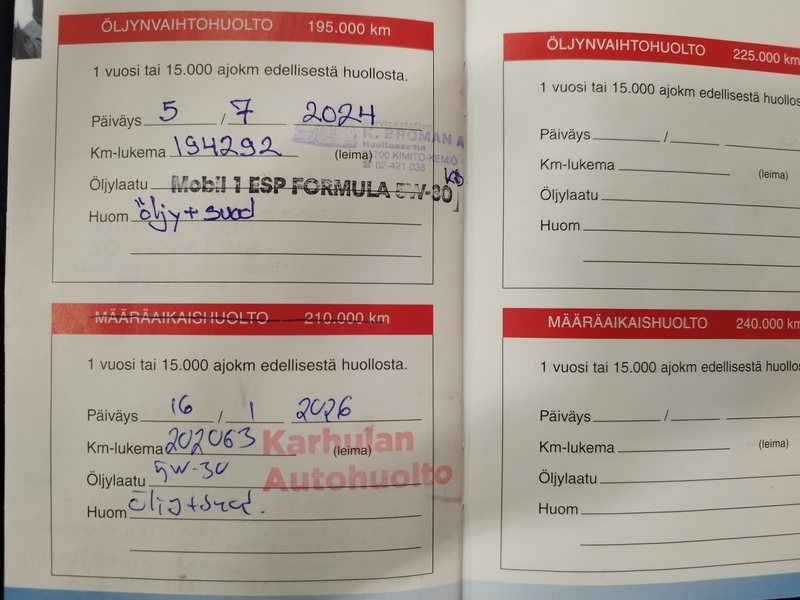 ÖLJYNVAIHTOHUOLTO 195.000 km
1 vuosi tai 15.000 ajokm edellisestä huollosta.
Päiväys 5 / 7 2024
Km-lukema 194292 (leima)
BROMAN
Huoltoasema
700 KIMITO-KEMIÖ
02-421 038
Öljylaatu Mobil 1 ESP FORMULA 5W-30
Huom öljy + suod
MÄÄRÄAIKAISHUOLTO 210.000 km
1 vuosi tai 15.000 ajokm edellisestä huollosta.
Päiväys 16 / 1 2026
Km-lukema 202063 (leima)
Karhulan
Autohuolto
Öljylaatu 5W-30
Huom Öljy + suod.
ÖLJYNVAIHTOHUOLTO 225.000 km
1 vuosi tai 15.000 ajokm edellisestä huollos
Päiväys /
Km-lukema (leima)
Öljylaatu
Huom
MÄÄRÄAIKAISHUOLTO 240.000 km
1 vuosi tai 15.000 ajokm edellisestä huollos
Päiväys /
Km-lukema (leima)
Öljylaatu
Huom